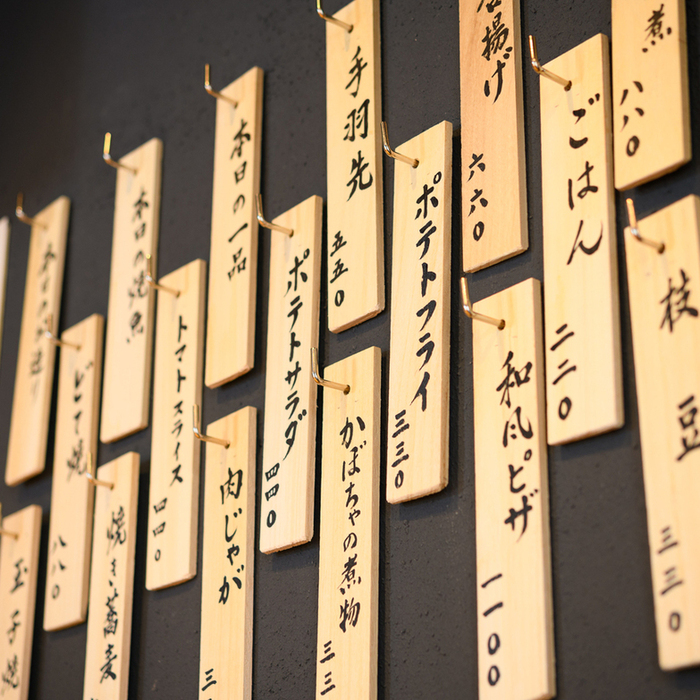 煮
八八〇
枝豆
三三〇
ごはん
二二〇
揚げ
六六〇
和風ピザ
一一〇〇
ポテトフライ
三三〇
手羽先
五五〇
かぼちゃの煮物
三三
ポテトサラダ
四四〇
本日の一品
肉じゃが
三
トマトスライス
四四〇
本日の焼魚
焼き蕎麦
どて焼
八八〇
本日の
玉子焼